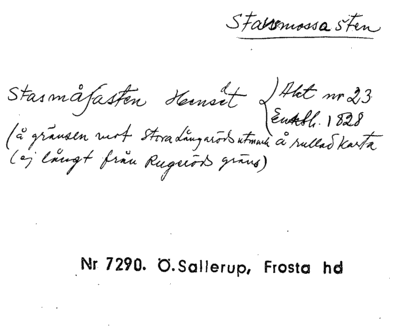 Starrmossasten
Stasmåsasten Hemsdt { Akt nr 23
Enskh. 1828
(å gränsen mot Stora Långaröds utmark å rullad karta
(ej långt från Rugeröds gräns)
Nr 7290. Ö.Sallerup, Frosta hd